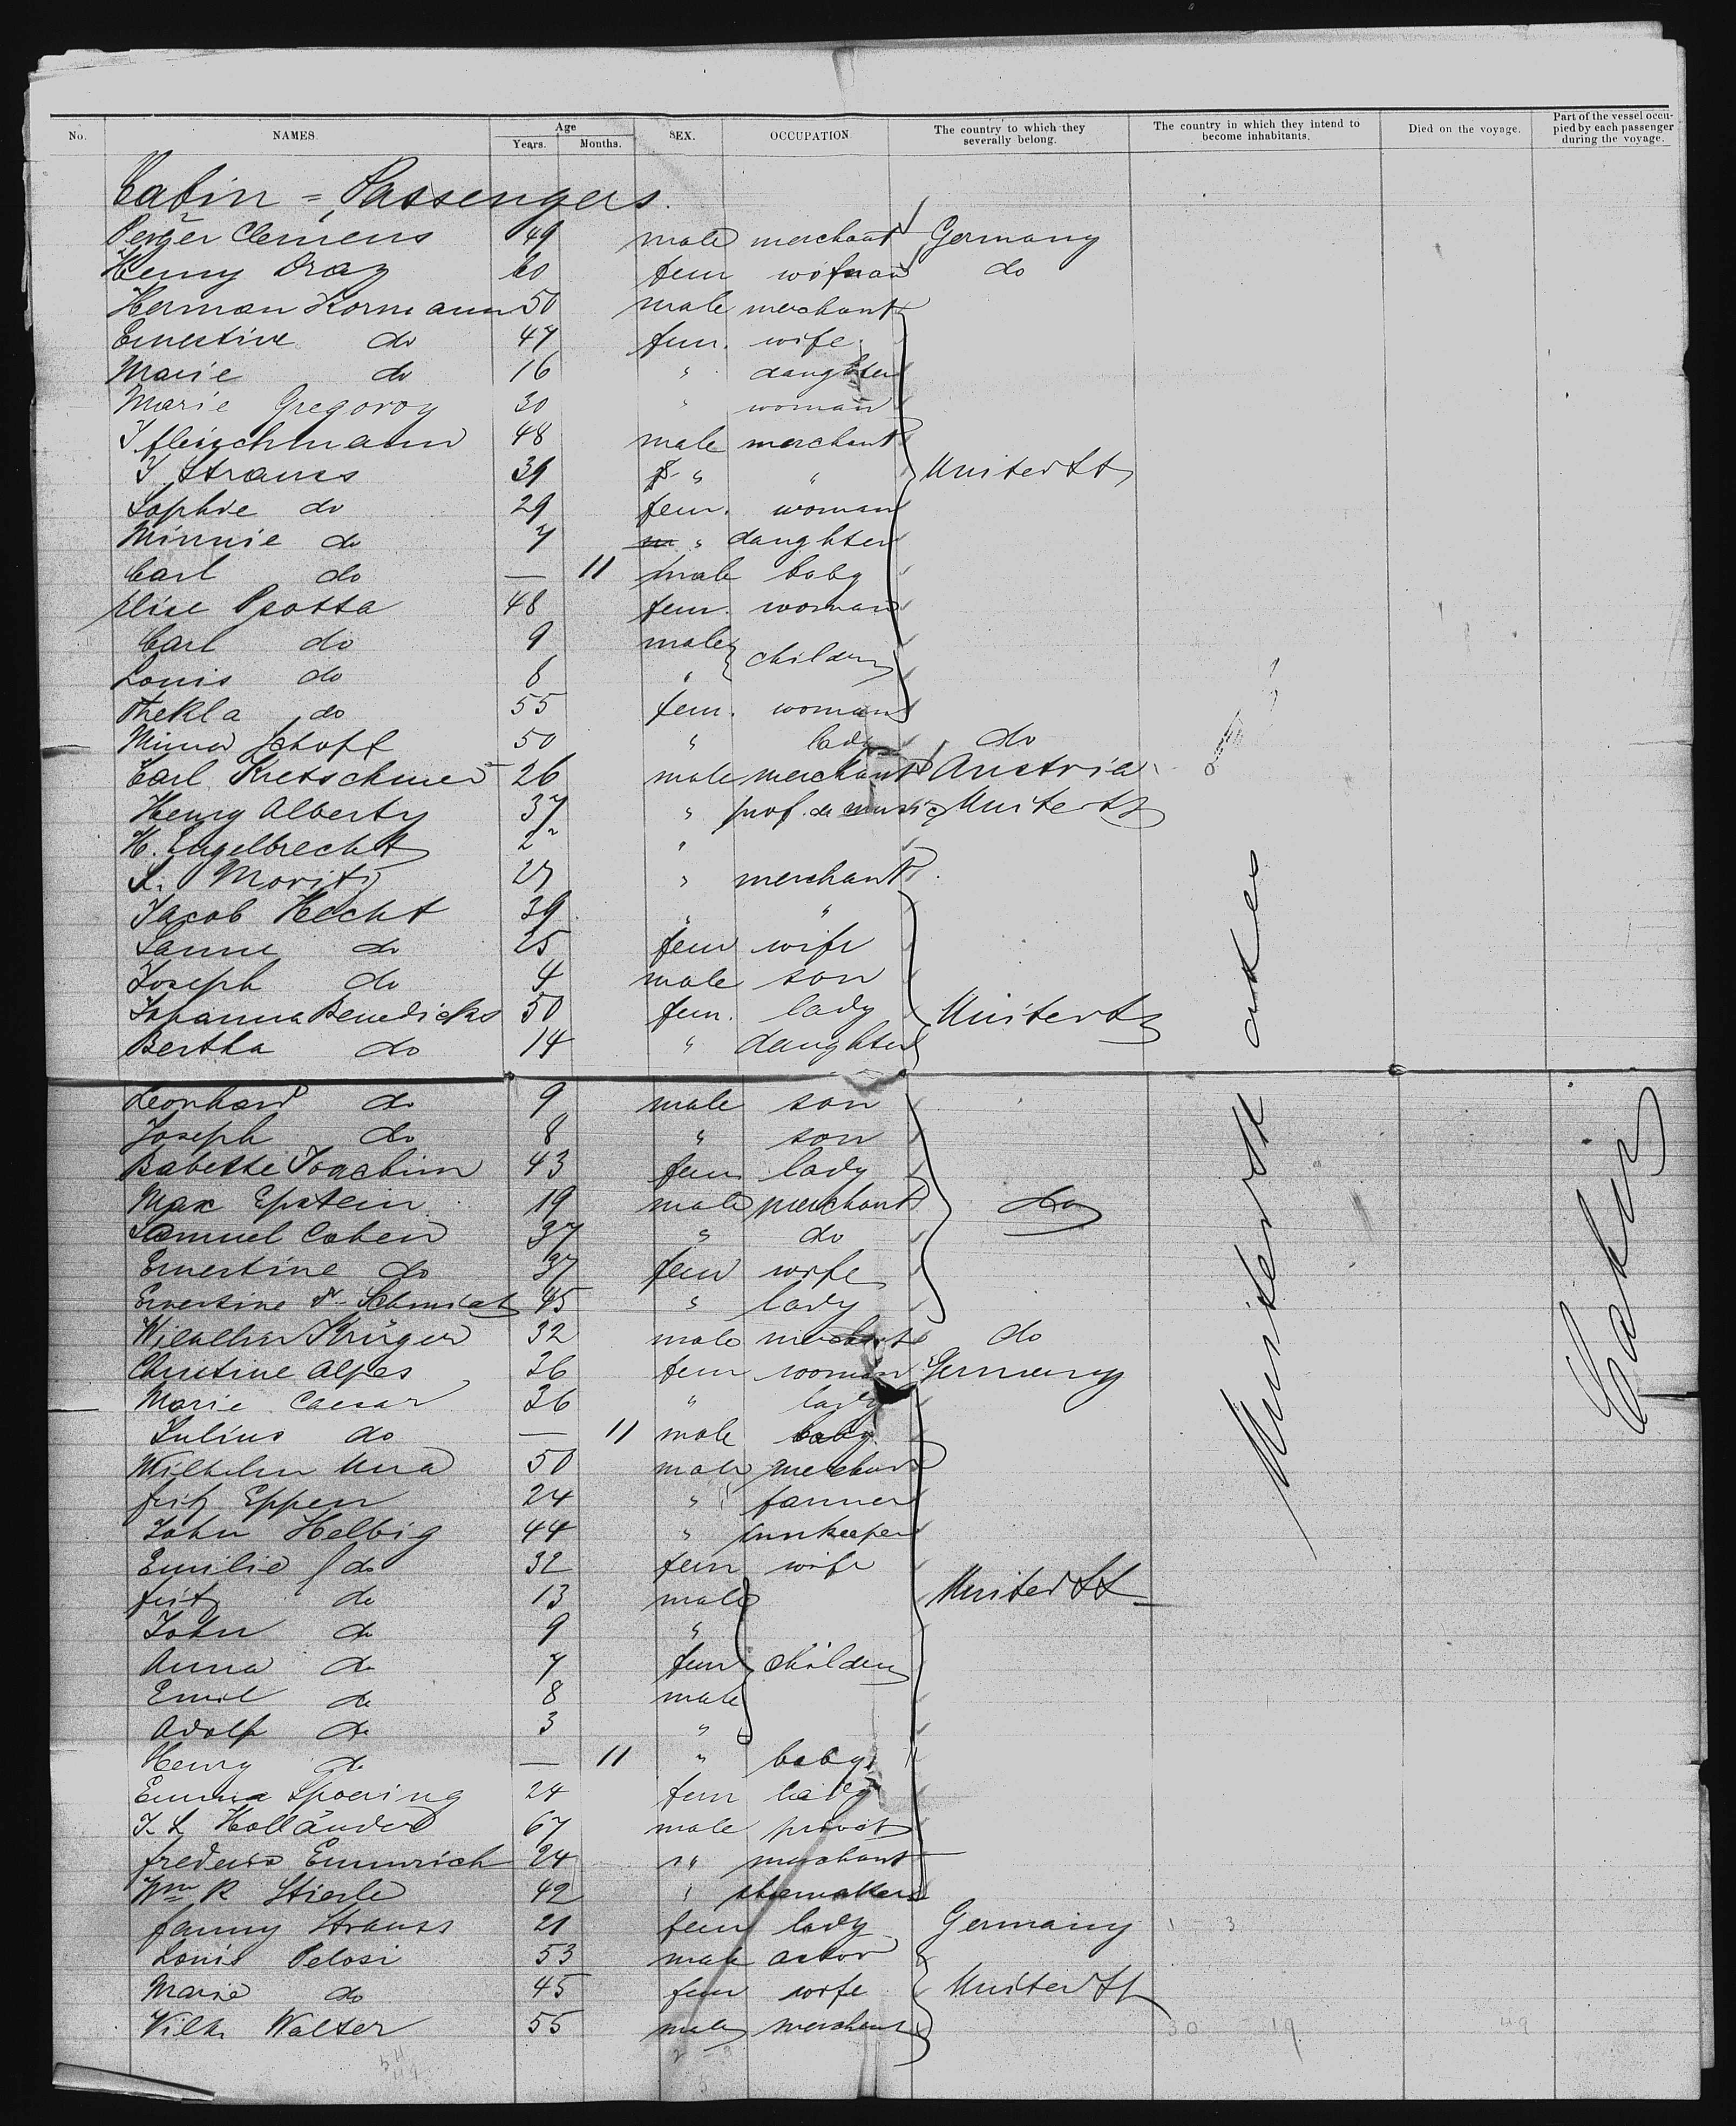 No. NAMES. Age Years. Months. SEX. OCCUPATION. The country to which they severally belong. The country in which they intend to become inhabitants. Died on the voyage. Part of the vessel occupied by each passenger during the voyage.
Cabin = Passengers.
Clemens 49 male merchant Germany
Henny 60 fem do
Herman Kormann 50 male merchant
Ernestine do 47 fem. wife
Marie do 16 " daughter
Marie Gregoroy 30 " woman
J. fleischmann 48 male merchant
J. Strauss 39 " " United St
Sophie do 29 fem. woman
Minnie do 7 " daughter
Carl do — 11 male baby
Elise 48 fem. woman
Carl do 9 male children
Louis do 6 "
Thekla do 55 fem. woman
Minna Schopf 50 " lady do
Carl Kretschmer 26 male merchant Austria
Henry Alberty 37 " prof. de music United St
H. Engelbrecht "
L. Moritz 27 " merchant
Jacob Hecht 39 " "
do 25 fem wife
Joseph do 4 male son
Johanna Benedicks 50 fem. lady United St
Bertha do 14 " daughter
Leonhard do 9 male son
Joseph do 8 " son
Babette Joachim 43 fem lady
Max Epstein 19 male merchant do
Samuel Cohen 37 " do
Ernestine do 37 fem wife
Ernestine Schmidt 45 " lady
Wilhelm Krüger 32 male merchant do
Christine Alpes 36 fem woman Germany
Marie Caesar 26 " lady
Julius do — 11 male baby
Wilhelm 50 male merchant
fritz Eppen 24 " farmer
John Helbig 44 " innkeeper
Emilie do 32 fem wife
fritz do 13 male United St
John do 9 "
Anna do 7 fem children
Emil do 8 male
Adolf do 3 "
Henry do — 11 " baby
Emma Spoering 24 fem lady
J. L. Holländer 67 male privat
Emmrich 24 " merchant
Wm R Stierle 42 " shoemaker
fanny Strauss 21 fem lady Germany
Louis Pelosi 53 male actor
Marie do 45 fem wife United St
Wilh. Walter 55 male merchant
United St